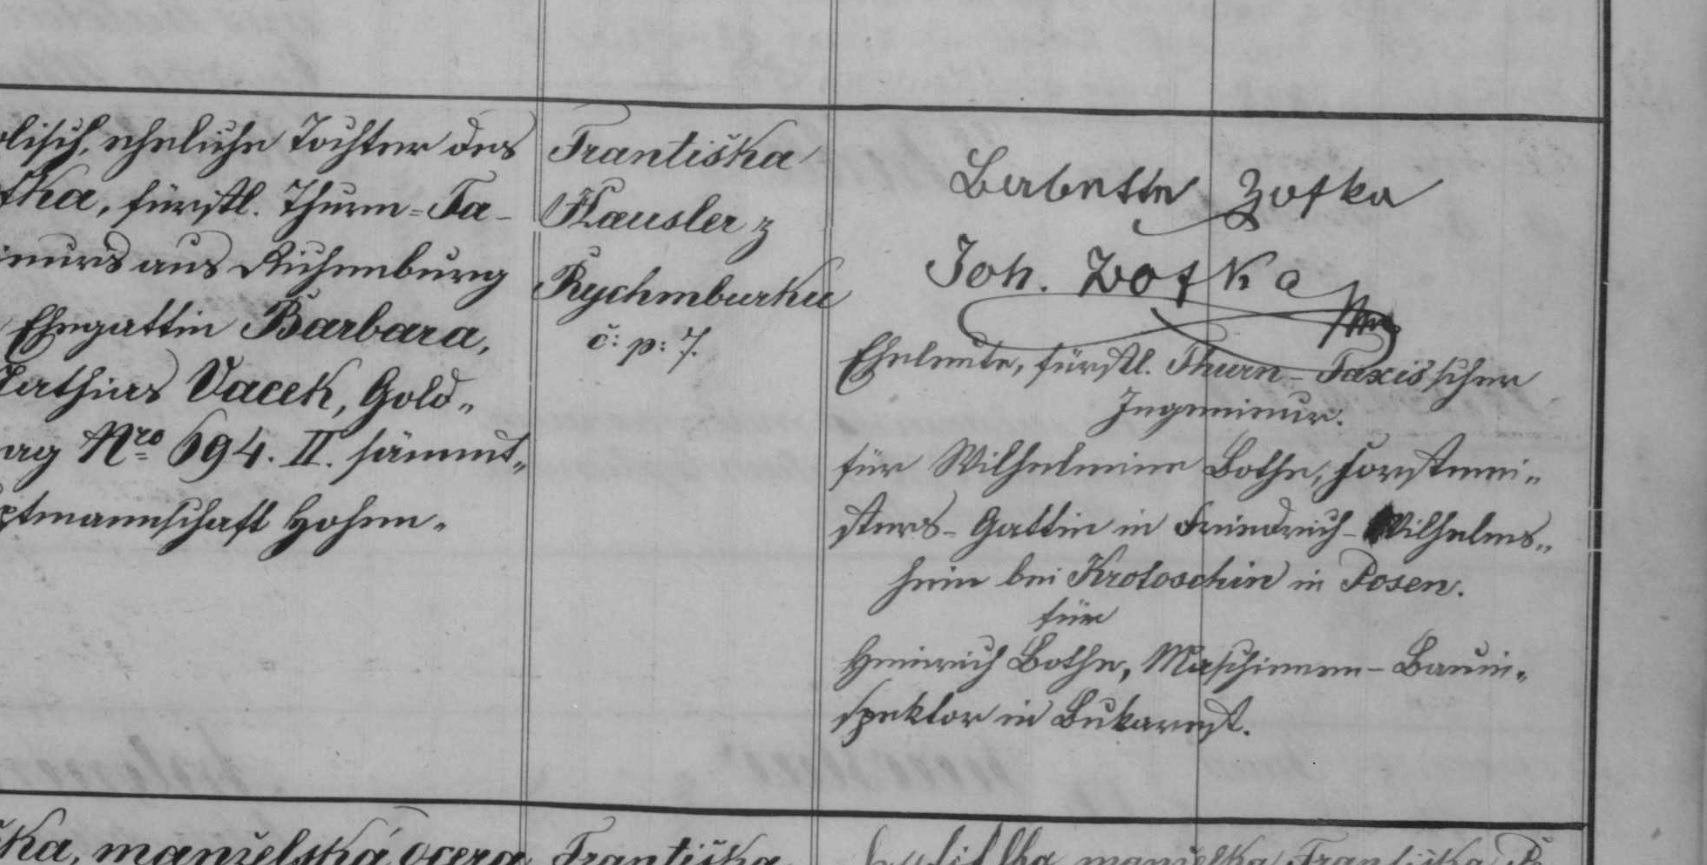 olisch, eheliche Tochter des
fka, fürstl. Thurn=Ta-
ieurs aus Richenburg
Ehegattin Barbara,
Mathias Vacek, Gold„
ag Nro 694. II. sämmt„
ptmannschaft Hohen„
Františka
Hausler z
Rychmburku
č: p: 7.
Babette Zofka
Joh. Zofka
Eheleute, fürstl. Thurn-Taxis'scher
Ingenieur.
für Wilhelmine Bothe, Forstmei„
sters-Gattin in Friedrich-Wilhelms„
hein bei Krotoschin in Posen.
für
Heinrich Bothe, Maschienen-Bauin„
spektor in Bukarest.
ka, manželská dcera
Františka
manželka Františka